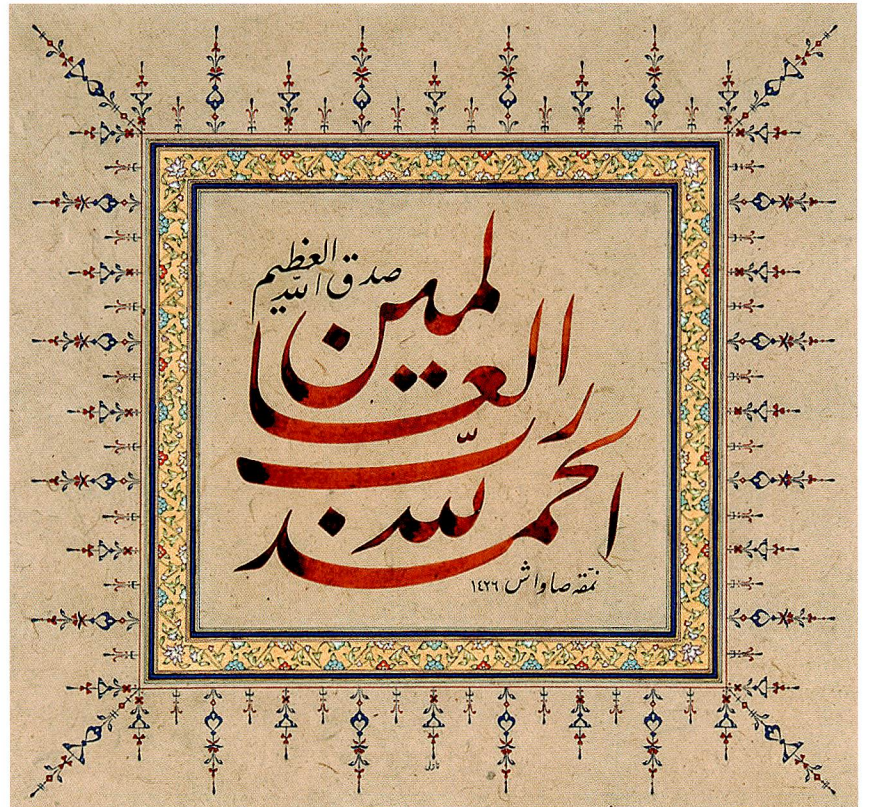 الحمد لله
رب
العالمين
صدق الله العظيم
نمقه صاواش ١٤٢٦